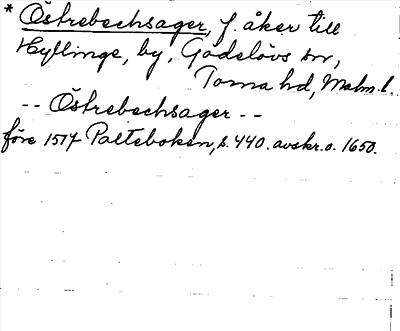 * Östrebechsager, f. åker till
Hyllinge, by, Gödelövs sn,
Torna hd, Malm. l.
-- Östrebechsager --
före 1517 Palteboken, s. 440. avskr. o. 1650.